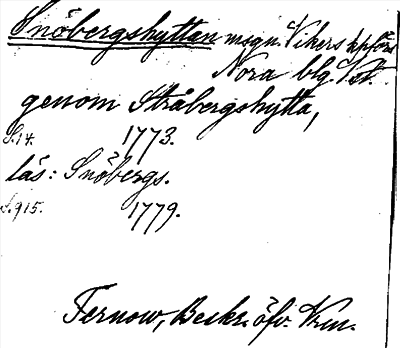 Snöbergshyttan mogn. Vikers kpförs
Nora blg. Vstm.
genom Stråbergshytta,
S. 14. 1773.
läs: Snöbergs.
S. 915. 1779.
Fernow, Beskr. öfv. Vrm.